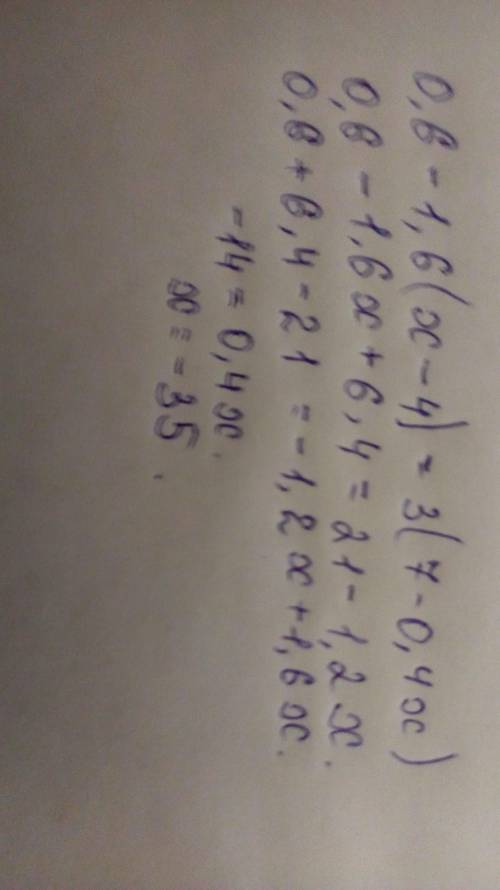 0,6 - 1,6(x - 4) = 3(7 - 0,4x)
0,6 - 1,6x + 6,4 = 21 - 1,2x.
0,6 + 6,4 - 21 = -1,2x + 1,6x.
-14 = 0,4x.
x = -35.